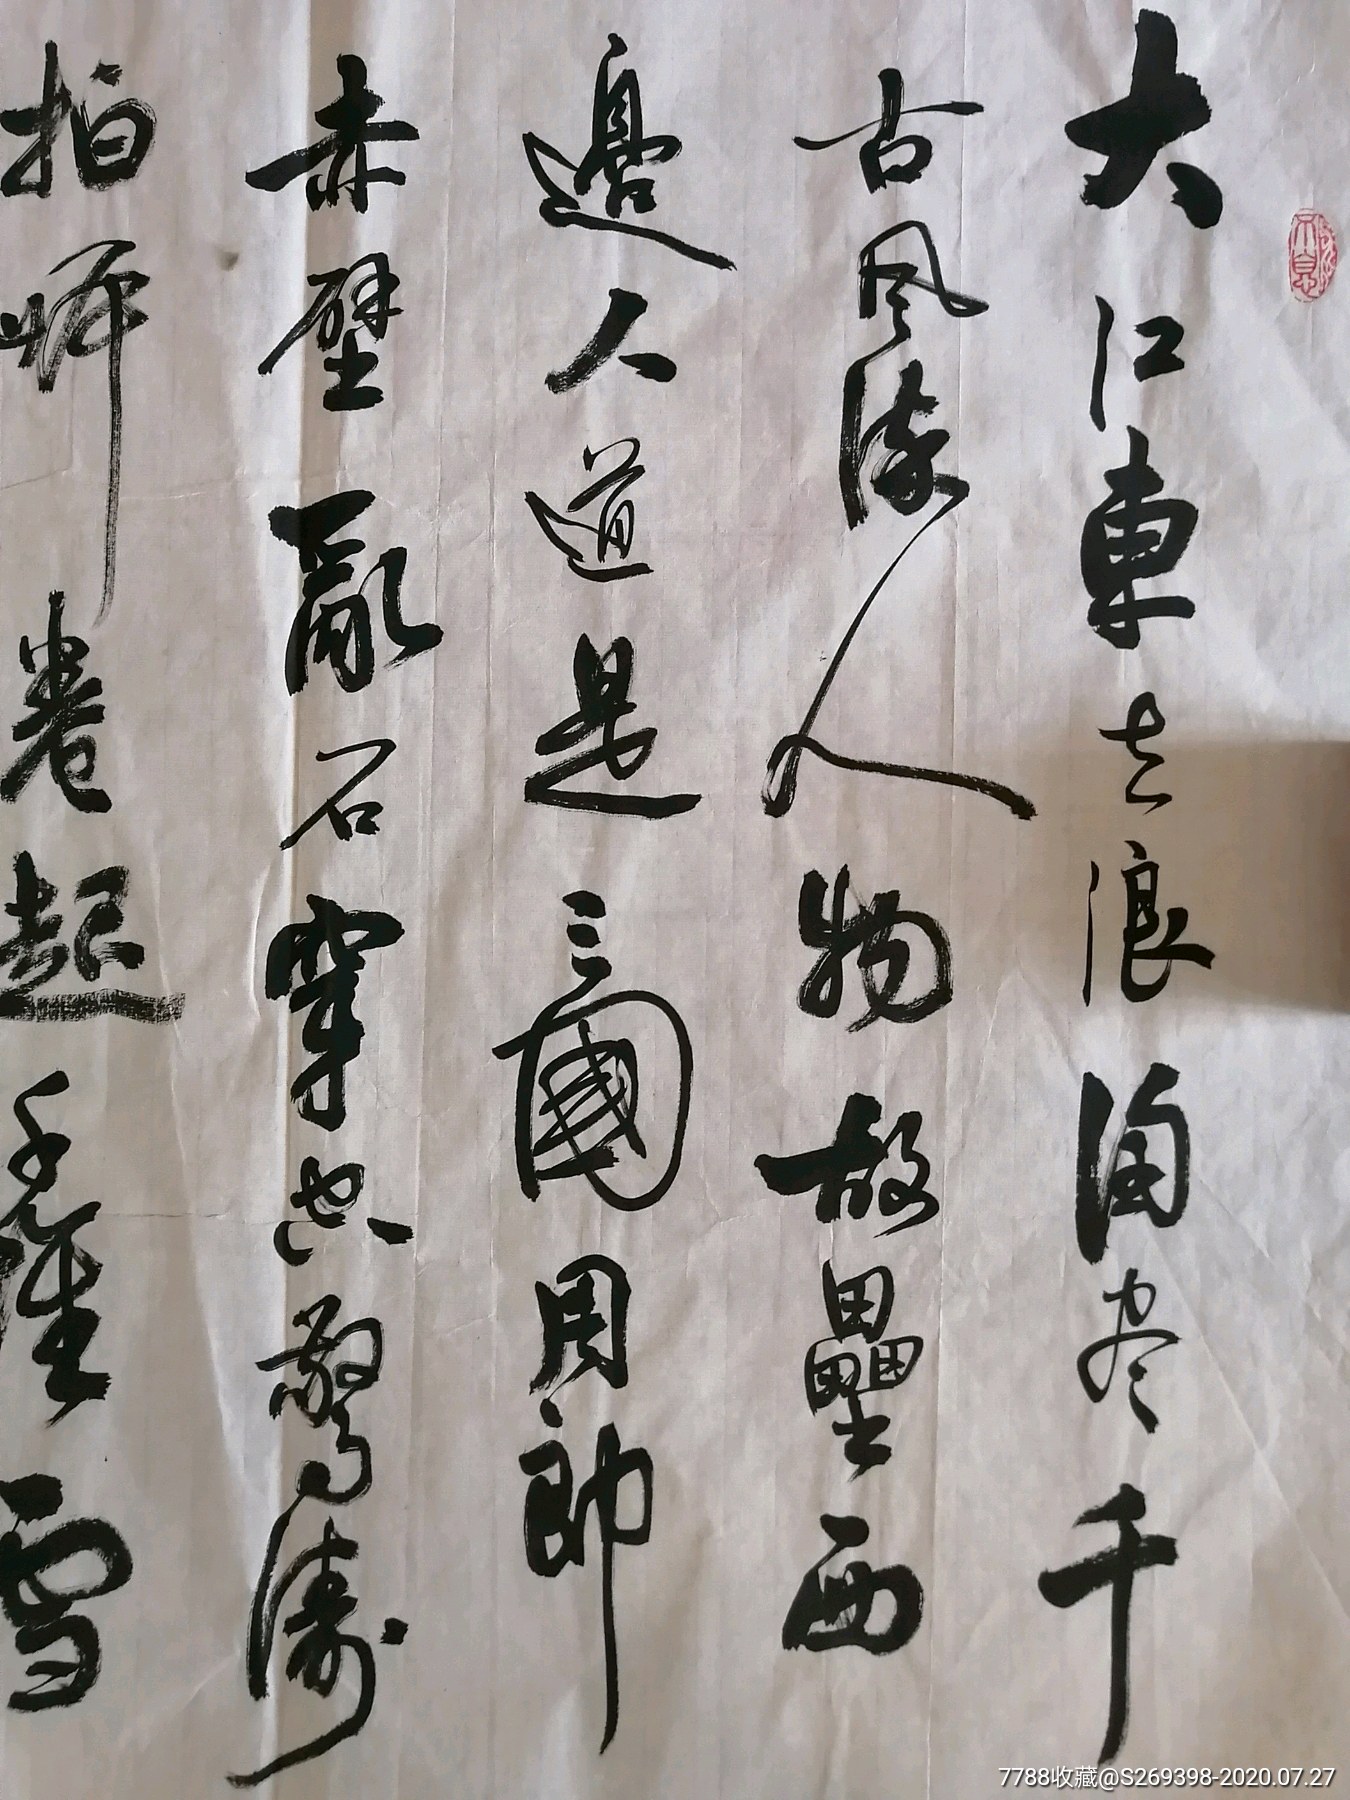 大江東去浪淘尽千
古風流人物故壘西
邊人道是三國周郎
赤壁亂石穿空驚濤
拍岸卷起千堆雪
7788收藏@S269398-2020.07.27